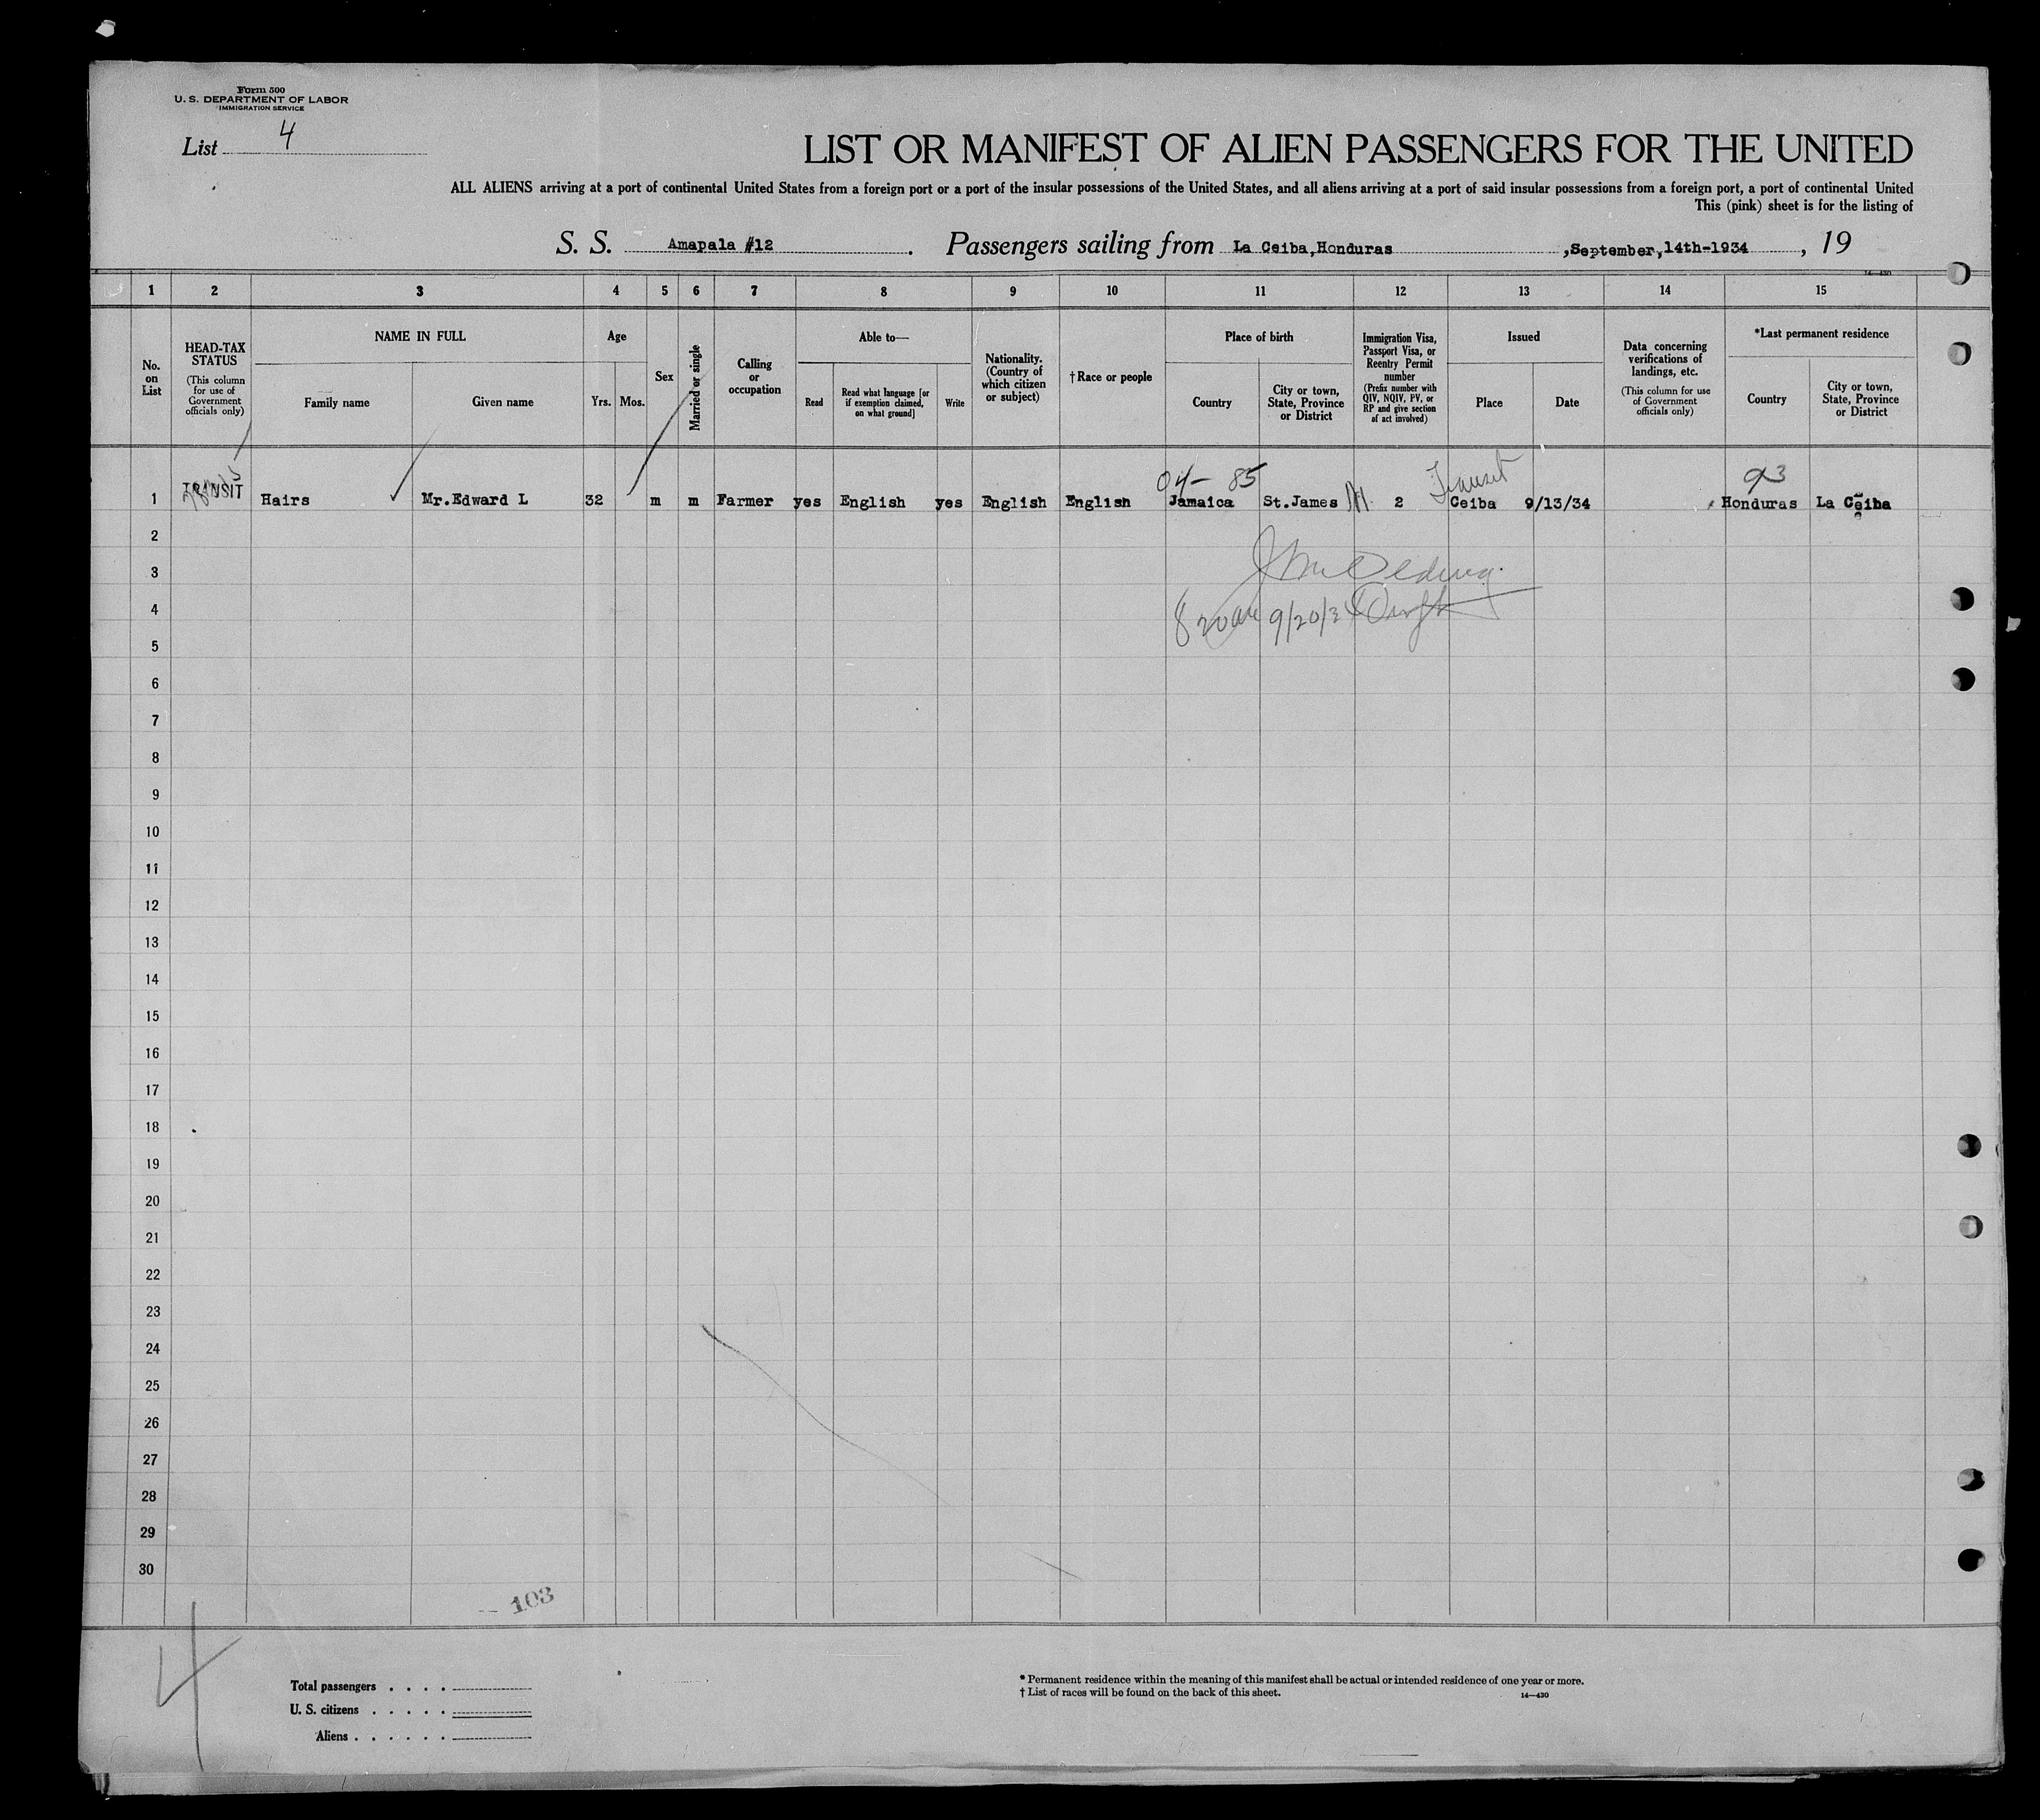 Form 500
U. S. DEPARTMENT OF LABOR
IMMIGRATION SERVICE
List 4
LIST OR MANIFEST OF ALIEN PASSENGERS FOR THE UNITED
ALL ALIENS arriving at a port of continental United States from a foreign port or a port of the insular possessions of the United States, and all aliens arriving at a port of said insular possessions from a foreign port, a port of continental United
This (pink) sheet is for the listing of
S. S. Amapala #12 . Passengers sailing from La Ceiba,Honduras ,September,14th-1934 , 19
14—430
1 2 3 4 5 6 7 8 9 10 11 12 13 14 15
No. on List
HEAD-TAX STATUS
(This column for use of Government officials only)
NAME IN FULL
Family name
Given name
Age
Yrs.
Mos.
Sex
Married or single
Calling or occupation
Able to—
Read
Read what language [or if exemption claimed, on what ground]
Write
Nationality. (Country of which citizen or subject)
†Race or people
Place of birth
Country
City or town, State, Province or District
Immigration Visa, Passport Visa, or Reentry Permit number
(Prefix number with QIV, NQIV, PV, or RP and give section of act involved)
Issued
Place
Date
Data concerning verifications of landings, etc.
(This column for use of Government officials only)
*Last permanent residence
Country
City or town, State, Province or District
04- 85 Transit 93
1 TRANSIT Hairs Mr.Edward L 32 m m Farmer yes English yes English English Jamaica St.James 2 Ceiba 9/13/34 Honduras La Ceiba
2
3
4 9/20/34
5
6
7
8
9
10
11
12
13
14
15
16
17
18
19
20
21
22
23
24
25
26
27
28
29
30
103
4
Total passengers . . . .
U. S. citizens . . . . .
Aliens . . . . . .
* Permanent residence within the meaning of this manifest shall be actual or intended residence of one year or more.
† List of races will be found on the back of this sheet.
14—430